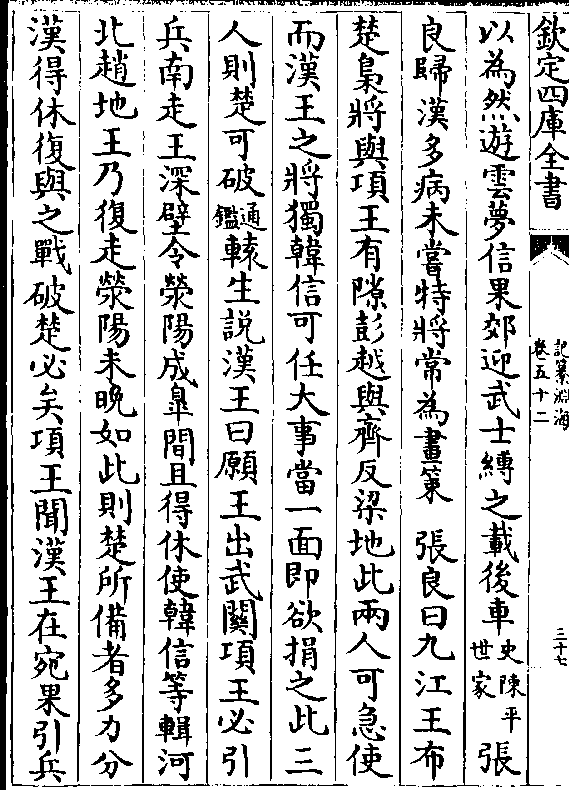 欽定四庫全書
記纂淵海
卷五十二
三十七
以為然遊雲夢信果郊迎武士縛之載後車史陳平世家 張
良歸漢多病未嘗特將常為畫策 張良曰九江王布
楚梟將與項王有隙彭越與齊反梁地此兩人可急使
而漢王之將獨韓信可任大事當一面即欲捐之此三
人則楚可破通鑑 轅生説漢王曰願王出武關項王必引
兵南走王深壁令滎陽成臯間且得休使韓信等輯河
北趙地王乃復走滎陽未晚如此則楚所備者多力分
漢得休復與之戰破楚必矣項王聞漢王在宛果引兵